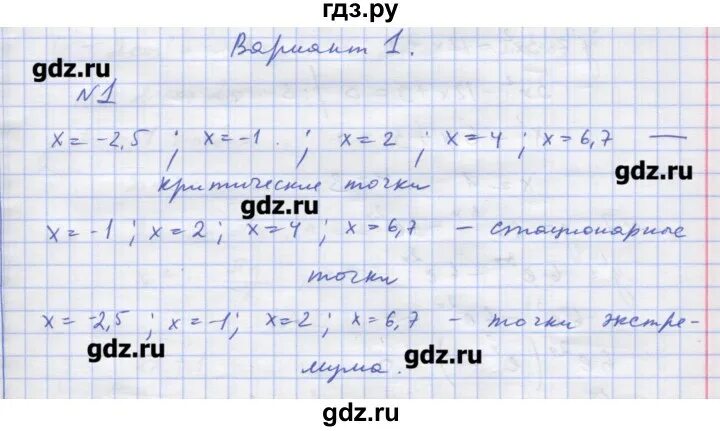 гдз.ру
Вариант 1.
gdz.ru
№1
x = -2,5 ; x = -1 ; x = 2 ; x = 4 ; x = 6,7 —
gdz.ru
критические точки
gdz.ru
x = -1 ; x = 2 ; x = 4 ; x = 6,7 - стационарные
точки
x = -2,5 ; x = -1 ; x = 2 ; x = 6,7 - точки экстре-
gdz.ru
gdz.ru
мума.
gdz.ru